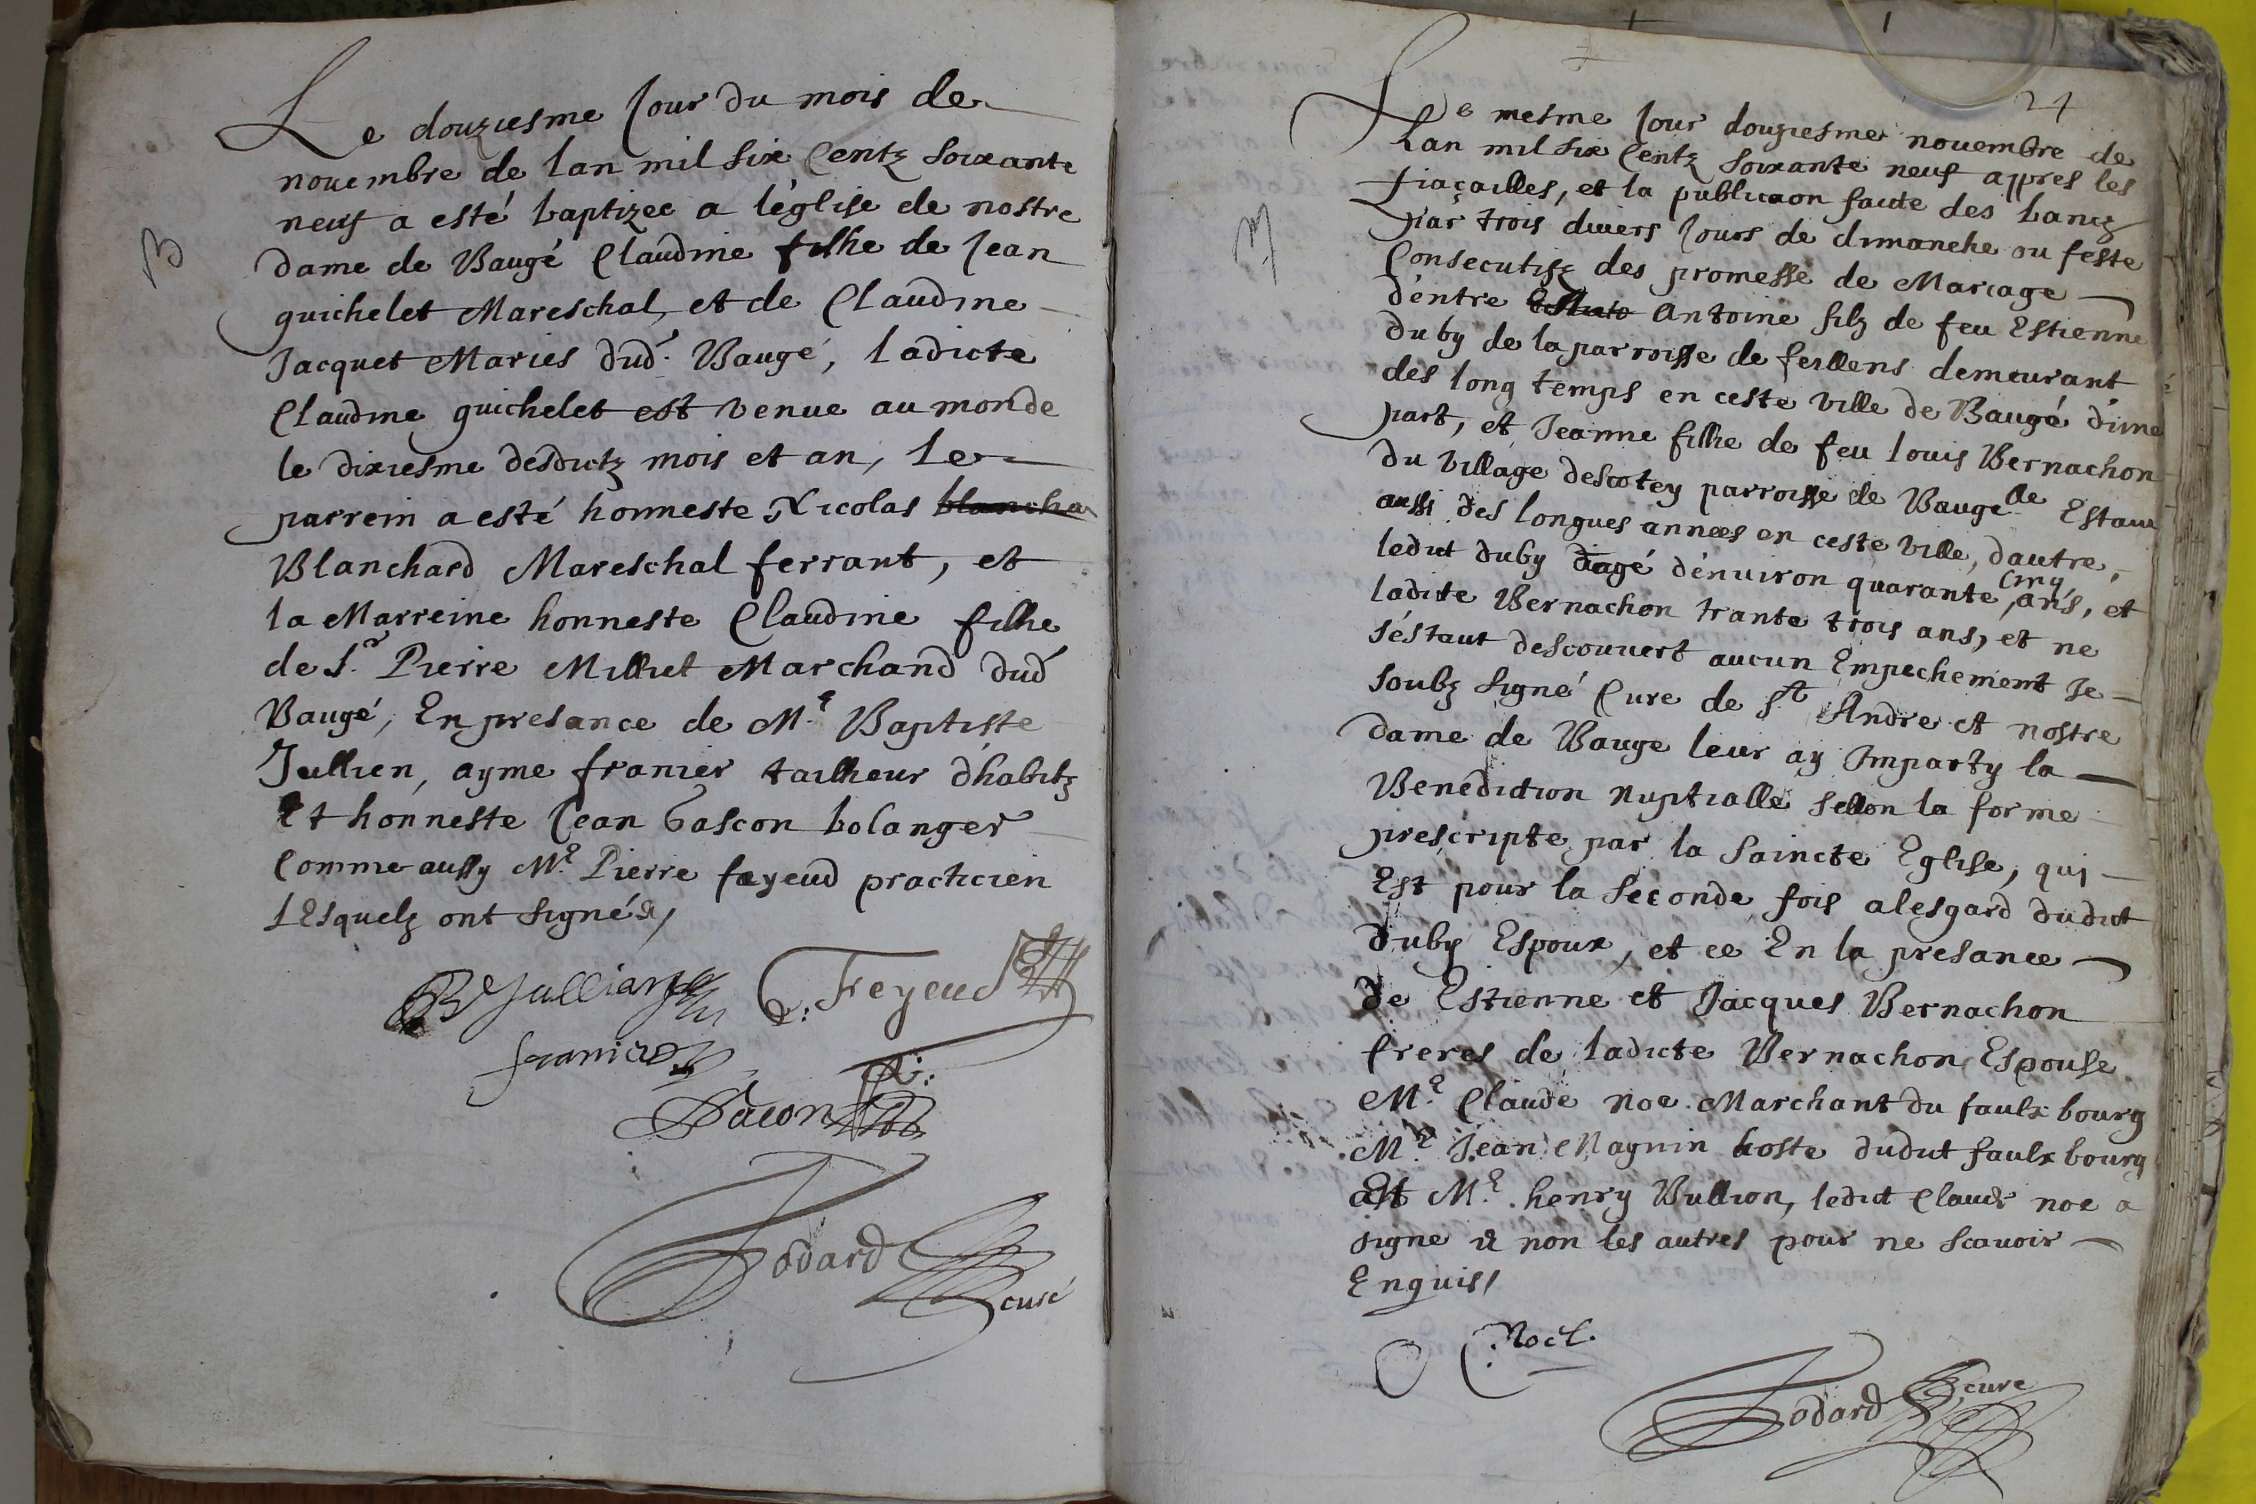 B
Le douziesme Jour du mois de
novembre de lan mil six Centz soixante
neuf a esté baptizee a léglise de nostre
dame de Baugé Claudine filhe de Jean
guichelet Mareschal, et de Claudine
Jacquet Mariés dud. Baugé, ladicte
Claudine guichelet est venue au monde
le dixiesme desdictz mois et an, Le
parrein a esté honneste Nicolas blancha
Blanchard Mareschal ferrant, et
la Marreine honneste Claudine filhe
de Sr. Pierre Milliet Marchand dud
Baugé, En presance de Me. Baptiste
Jullien, ayme franier tailheur d'habitz
Et honneste Jean Gascon bolanger
Comme aussy Me. Pierre fayeud practicien
LEsquelz ont signé &,
B Jullian
P: Feyeud
franier
Gacon
Todard
curé
24
M
Le mesme Jour douziesme novembre de
Lan mil six Centz soixante neuf appres les
fiaçailles, et la publicaon faicte des bancz
par trois divers Jours de dimanche ou feste
Consecutifz des promesse de Mariage
d'entre Antoine filz de feu Estienne
duby de la parroisse de feillens demeurant
des long temps en ceste ville de Baugé d'une
part, et Jeanne filhe de feu louis Bernachon
du village descotey parroisse de Baugé lle Estant
aussi des longues annees en ceste ville, dautre,
ledict duby aagé d'environ quarante cinq ans, et
ladite Bernachon trante trois ans, et ne
s'éstant descouvert aucun Empechement Je
soubz signé Cure de St Andre et nostre
dame de Bauge leur ay Imparty la
Benediction nuptialle sellon la forme
prescripte par la saincte Eglise, qui
Est pour la seconde fois alesgard dudict
duby Espoux, et ce En la presance
de Estienne et Jacques Bernachon
freres de ladicte Bernachon Espouse
Me. Claude noe Marchant du faulx bourg
Me. Jean Magnin hoste dudict faulx bourg
Et Me. henry Bullion, ledict Claude noe a
signe & non les autres pour ne scavoir
Enquis/
C. Noel.
Todard
cure